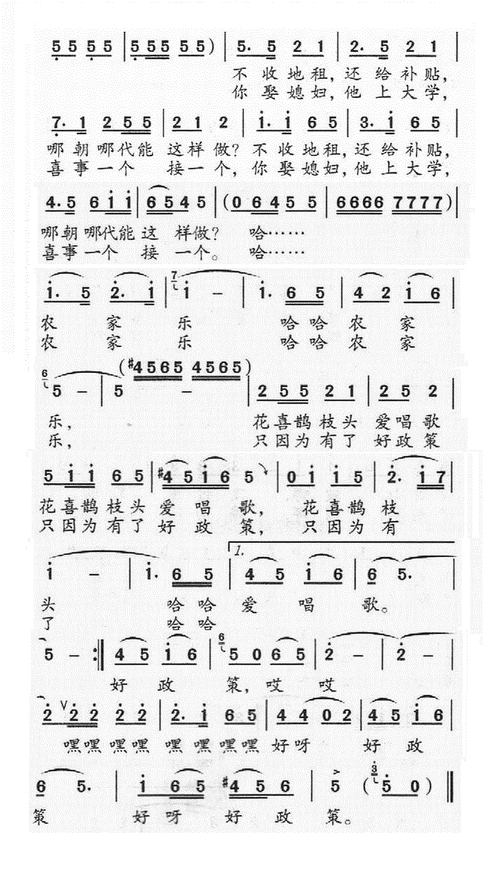 5 5 5 5 | 5 5 5 5 5 ) | 5. 5 2 1 | 2. 5 2 1 |
不 收 地 租, 还 给 补 贴,
你 娶 媳 妇, 他 上 大 学,
7. 1 2 5 5 | 2 1 2 | i. i 6 5 | 3. i 6 5 |
哪 朝 哪 代 能 这 样 做? 不 收 地 租, 还 给 补 贴,
喜 事 一 个 接 一 个, 你 娶 媳 妇, 他 上 大 学,
4. 5 6 i i | 6 5 4 5 | ( 0 6 4 5 5 | 6666 7777 ) |
哪 朝 哪 代 能 这 样 做? 哈……
喜 事 一 个 接 一 个。 哈……
i. 5 | 2. i | 7 i – | i. 6 5 | 4 2 i 6 |
农 家 乐 哈 哈 农 家
农 家 乐 哈 哈 农 家
6 5 – | 5 ( #4565 4565 ) – | 2 5 5 2 1 | 2 5 2 |
乐, 花 喜 鹊 枝 头 爱 唱 歌
乐, 只 因 为 有 了 好 政 策
5 i i 6 5 | #4 5 i 6 5 | 0 i i 5 | 2. i 7 |
花 喜 鹊 枝 头 爱 唱 歌, 花 喜 鹊 枝
只 因 为 有 了 好 政 策, 只 因 为 有
1.
i – | i. 6 5 | 4 5 i 6 | 6 5. |
头 哈 哈 爱 唱 歌。
了 哈 哈
5 – :‖ 4 5 i 6 | 6 5 0 6 5 | 2 – | 2 – |
好 政 策, 哎 哎
2 V 2 2 | 2 2 2 | 2. i 6 5 | 4 4 0 2 | 4 5 i 6 |
嘿 嘿 嘿 嘿 嘿 嘿 嘿 嘿 好 呀 好 政
6 5. | i 6 5 | #4 5 6 | > 5 ( 3 5 0 ) ‖
策 好 呀 好 政 策。